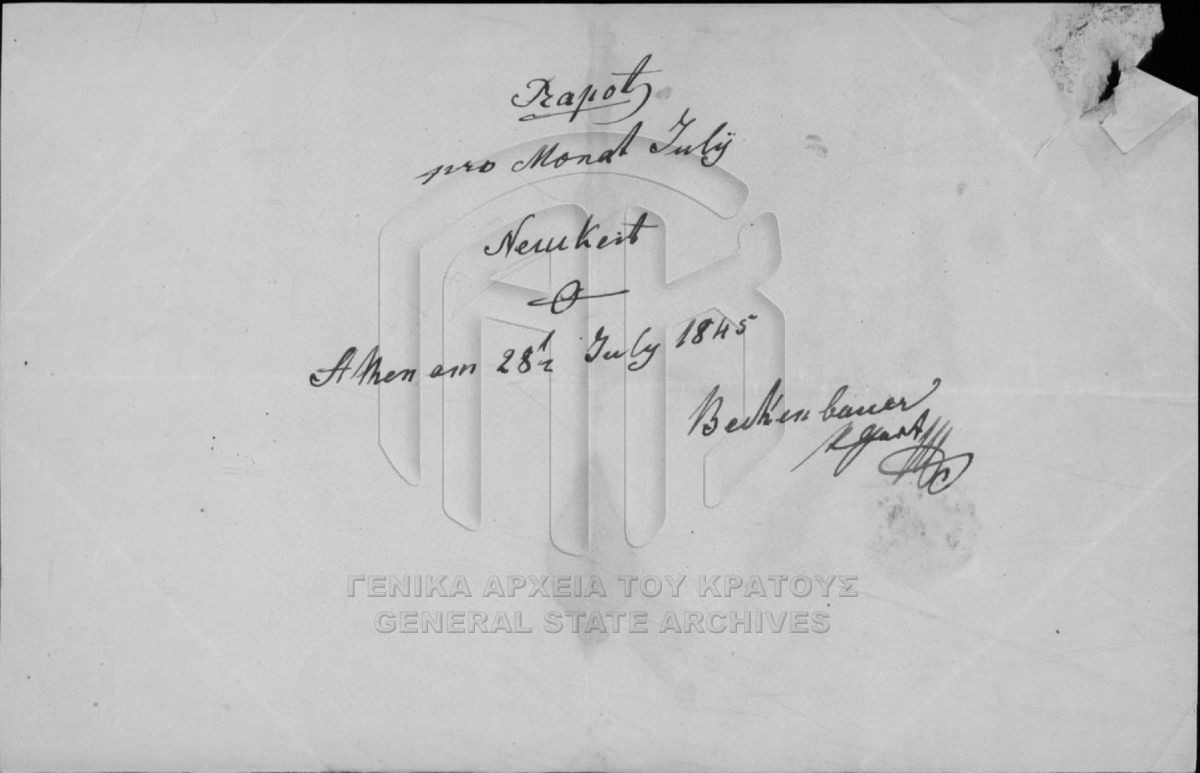 Rapot
pro Monat Julÿ
Neukeit
Athen am 28t July 1845
Beckenbauer
ΓΕΝΙΚΑ ΑΡΧΕΙΑ ΤΟΥ ΚΡΑΤΟΥΣ
GENERAL STATE ARCHIVES